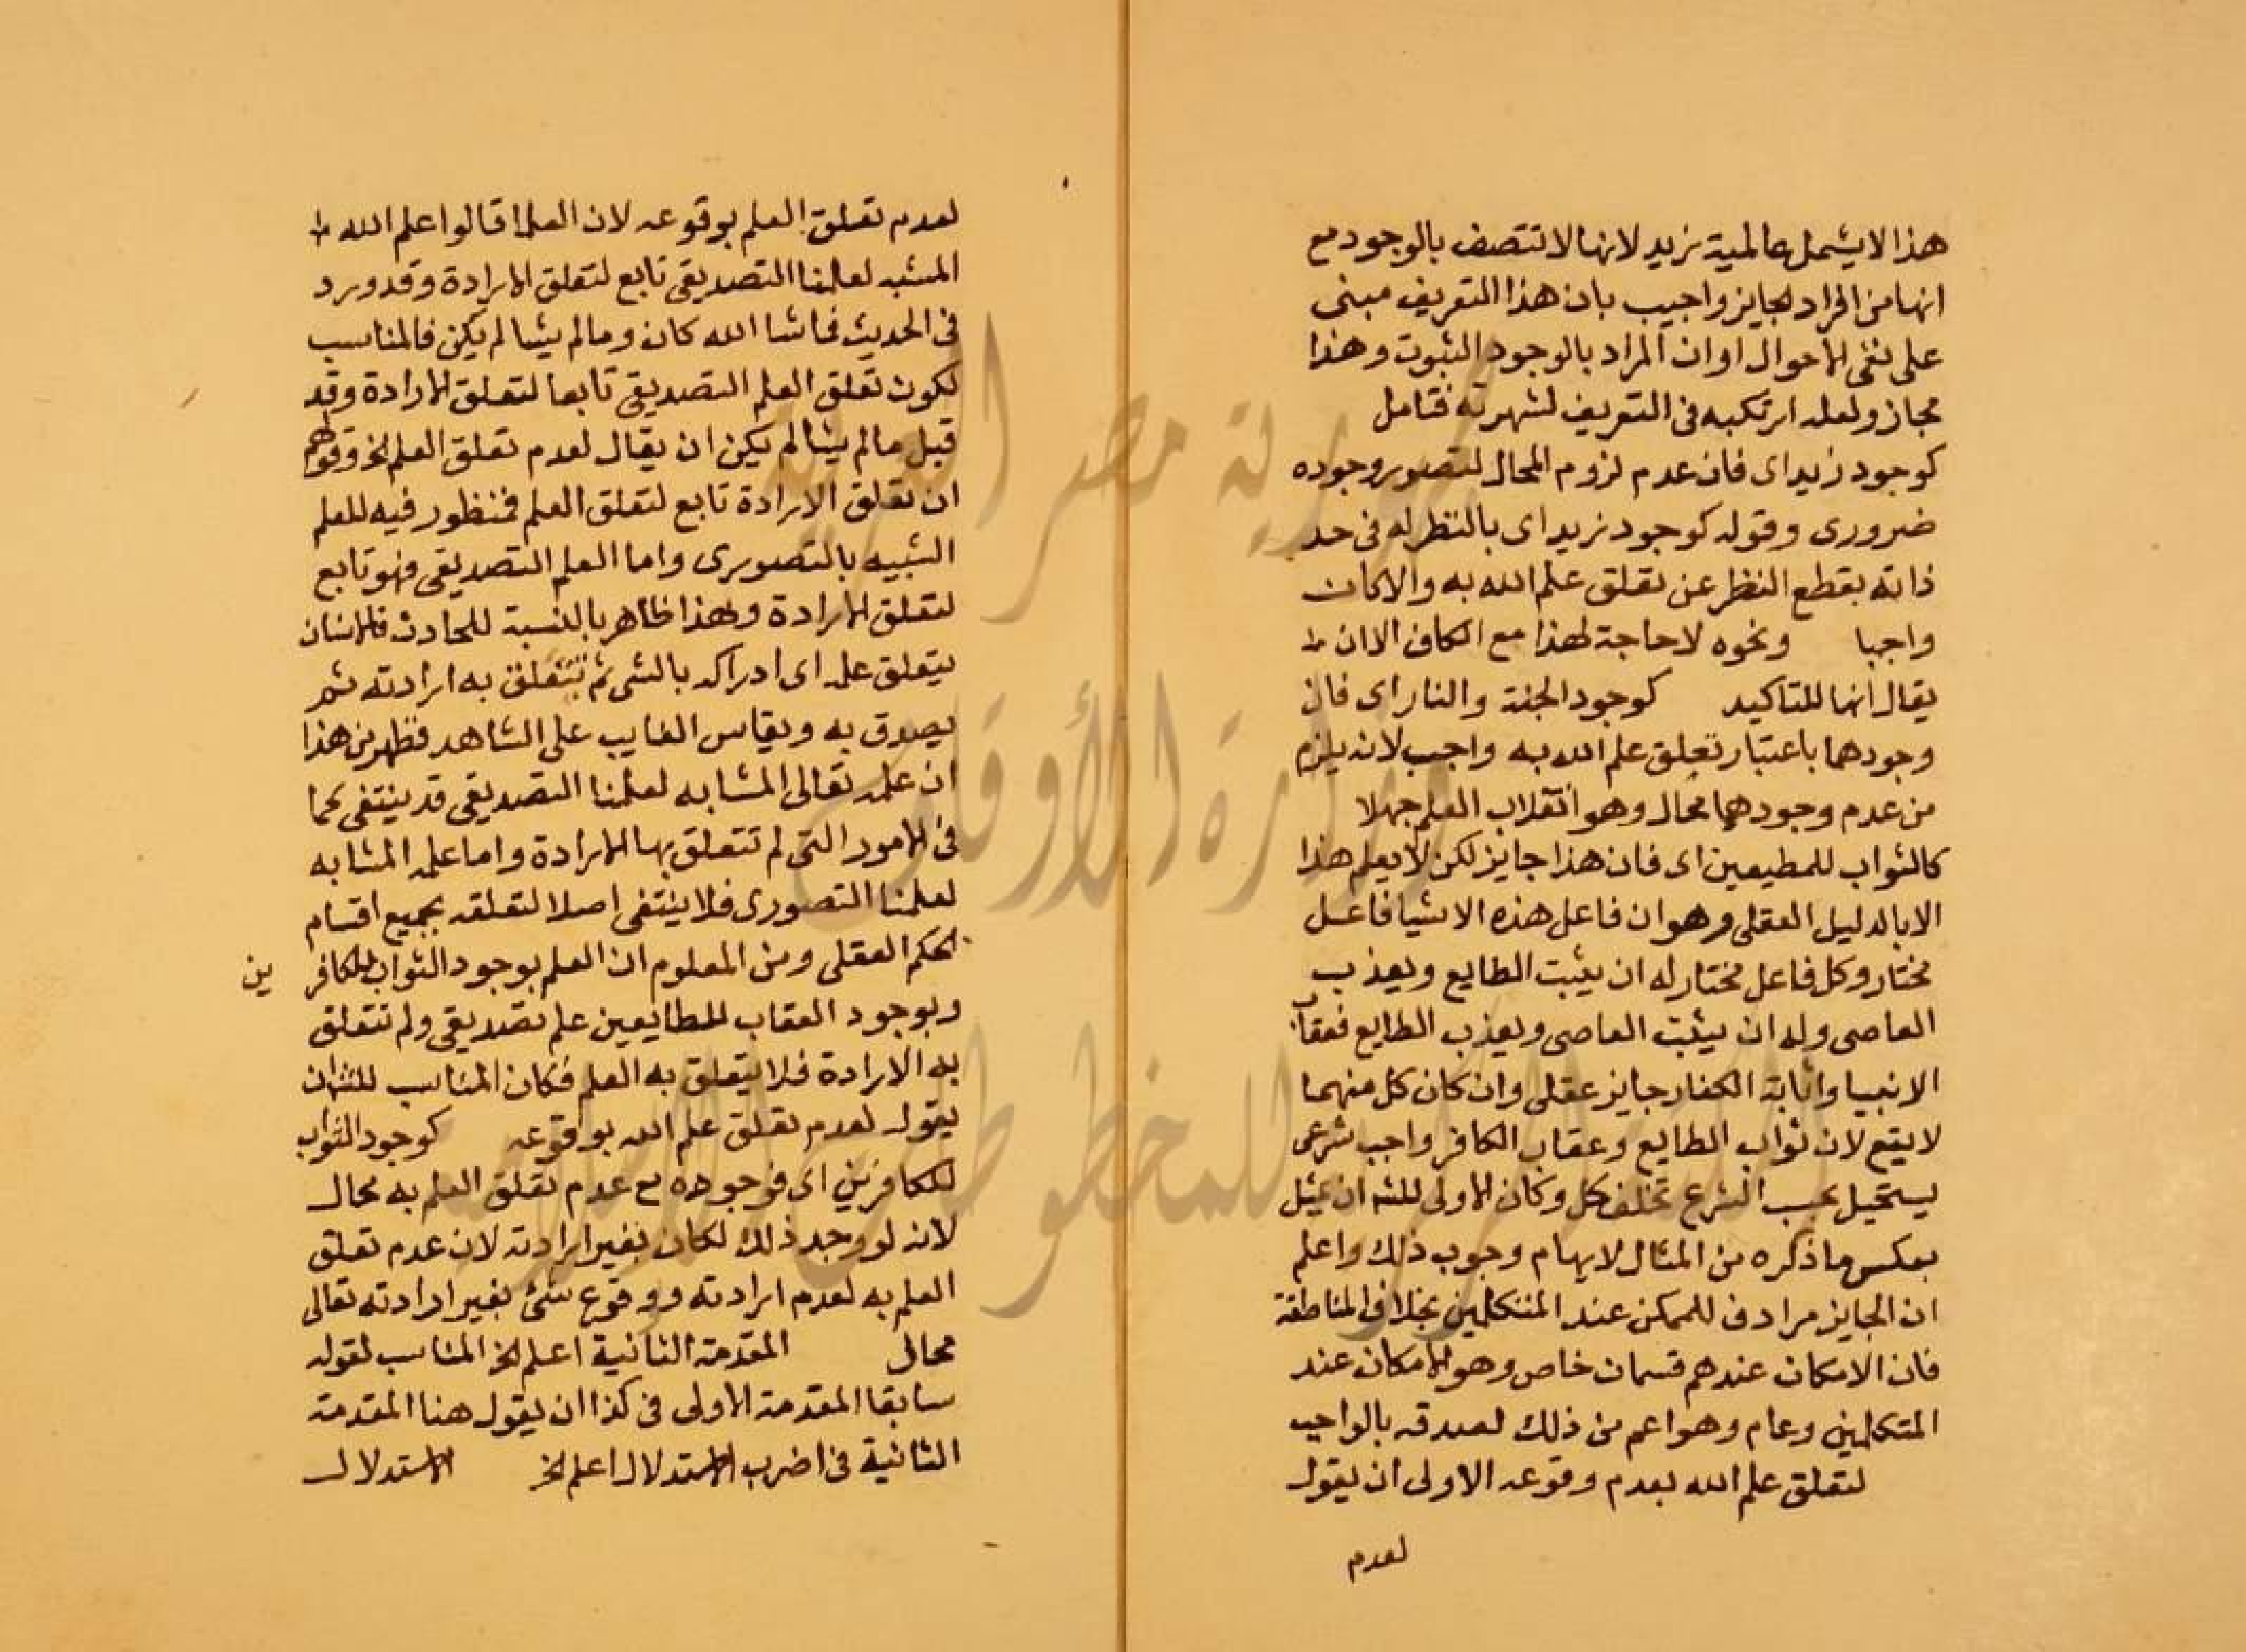 هذا لا يشمل عالمية زيد لانها لا تتصف بالوجود مع
انها من افراد الجايز واجيب بان هذا التعريف مبنى
على نفى الاحوال او ان المراد بالوجود الثبوت وهذا
مجاز ولعله ارتكبه فى التعريف لشهرته فتامل
كوجود زيد اى فان عدم لزوم المحال لتصور وجوده
ضرورى وقوله كوجود زيد اى بالنظر له فى حد
ذاته بقطع النظر عن تعلق علم الله به والا كان
واجبا ونحوه لا حاجة لهذا مع الكاف الا ان
يقال انها للتاكيد كوجود الجنة والنار اى فان
وجودهما باعتبار تعلق علم الله به واجب لانه يلزم
من عدم وجودهما محال وهو انقلاب العلم جهلا
كالثواب للمطيعين اى فان هذا جايز لكن لا يعلم هذا
الا بالدليل العقلى وهو ان فاعل هذه الاشيا فاعل
مختار وكل فاعل مختار له ان يثبت الطايع ويعذب
العاصى وله ان يثبت العاصى ويعذب الطايع فعقاب
الانبيا واثابة الكفار جايز عقلى وان كان كل منهما
لا يقع لان ثواب الطايع وعقاب الكافر واجب شرعى
يستحيل بحسب الشرع تخلف كل وكان الاولى للشه ان يمثل
بعكس ما ذكره من المثال لايهام وجوب ذلك واعلم
ان الجايز مرادف للممكن عند المتكلمين بخلاف المناطقة
فان الامكان عندهم قسمان خاص وهو الامكان عند
المتكلمين وعام وهو اعم من ذلك لصدقه بالواجب
لتعلق علم الله بعدم وقوعه الاولى ان يقول
لعدم
لعدم تعلق العلم بوقوعه لان العلما قالوا علم الله
المشبه لعلمنا التصديقى تابع لتعلق الارادة وقد ورد
فى الحديث فما شا الله كان وما لم يشا لم يكن فالمناسب
لكون تعلق العلم التصديقى تابعا لتعلق الارادة وقد
قيل ما لم يشا لم يكن ان يقال لعدم تعلق العلم الخ وقولهم
ان تعلق الارادة تابع لتعلق العلم فمنظور فيه للعلم
الشبيه بالتصورى واما العلم التصديقى فهو تابع
لتعلق الارادة وهذا ظاهر بالنسبة للحادث فالانسان
يتعلق علمه اى ادراكه بالشى ثم تتعلق به ارادته ثم
يصدق به ويقاس الغايب على الشاهد فظهر من هذا
ان علمه تعالى المشابه لعلمنا التصديقى قد ينتفى كما
فى الامور التى لم تتعلق بها الارادة واما علمه المشابه
لعلمنا التصورى فلا ينتفى اصلا لتعلقه بجميع اقسام
الحكم العقلى ومن المعلوم ان العلم بوجود الثواب للكافر
ين
وبوجود العقاب للطايعين علم تصديقى ولم تتعلق
به الارادة فلا يتعلق به العلم فكان المناسب للشه ان
يقول لعدم تعلق علم الله بوقوعه كوجود الثواب
للكافرين اى فوجوده مع عدم تعلق العلم به محال
لانه لو وجد ذلك لكان بغير ارادته لان عدم تعلق
العلم به لعدم ارادته ووقوع شئ بغير ارادته تعالى
محال المقدمة الثانية اعلم الخ المناسب لقوله
سابقا المقدمة الاولى فى كذا ان يقول هنا المقدمة
الثانية فى اضرب الاستدلال اعلم الخ الاستدلال